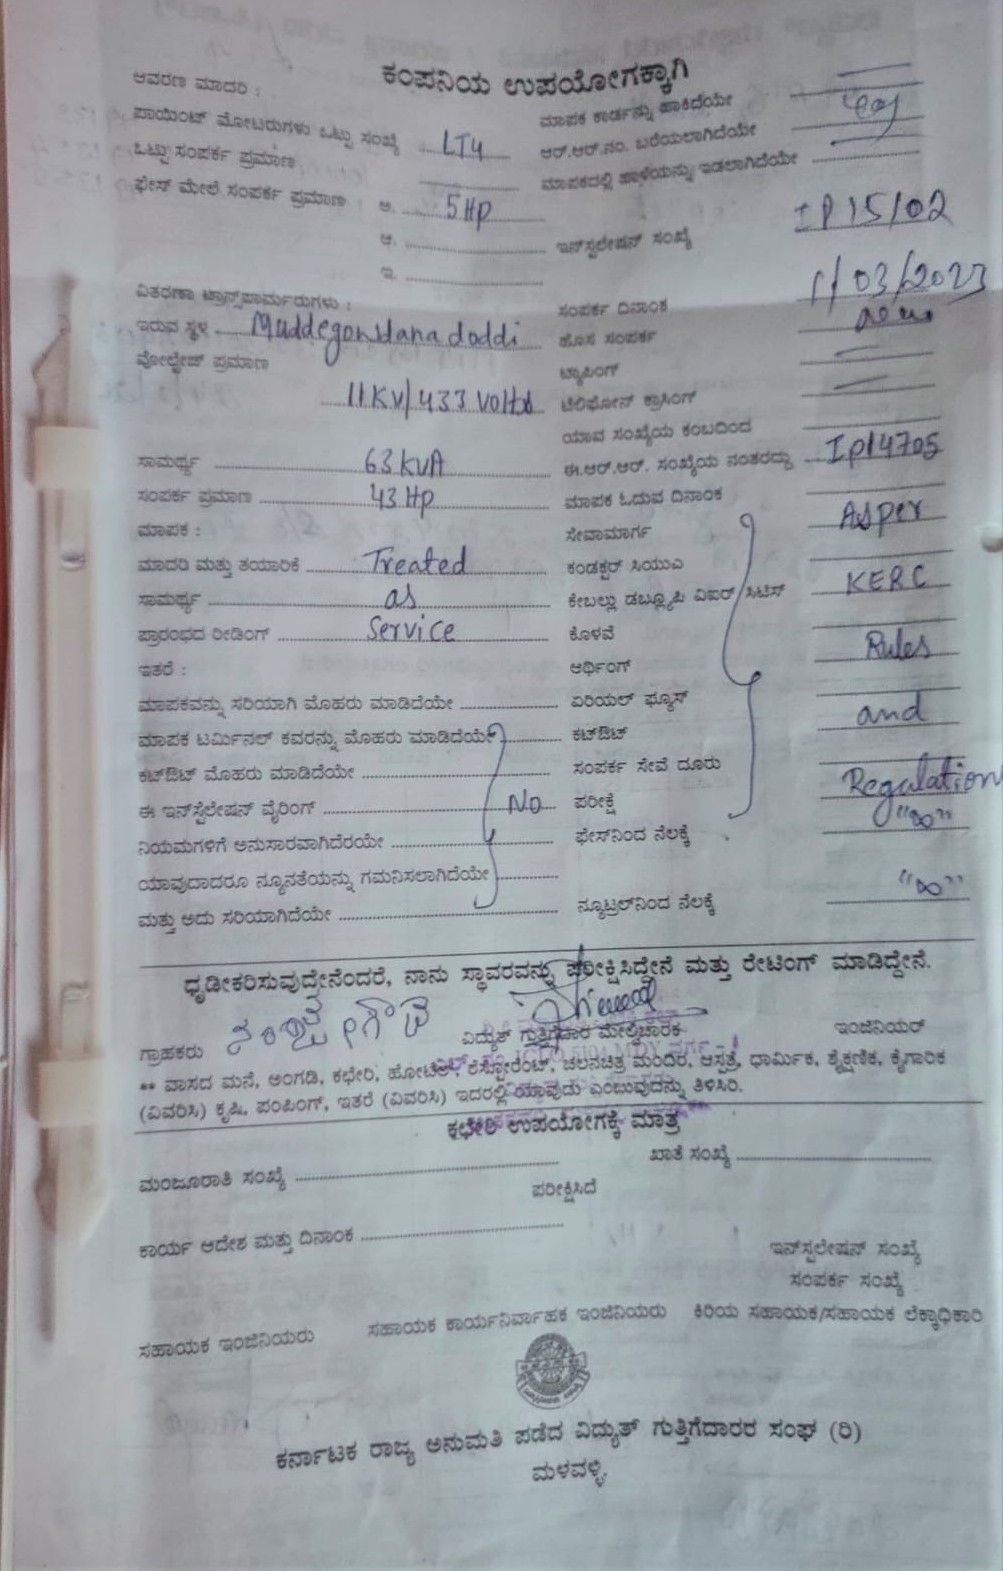 ಕಂಪನಿಯ ಉಪಯೋಗಕ್ಕಾಗಿ
ಆವರಣ ಮಾದರಿ :
ಪಾಯಿಂಟ್ ಮೋಟರುಗಳು ಒಟ್ಟು ಸಂಖ್ಯೆ LT4
ಒಟ್ಟು ಸಂಪರ್ಕ ಪ್ರಮಾಣ
ಫೇಸ್ ಮೇಲೆ ಸಂಪರ್ಕ ಪ್ರಮಾಣ : ಅ. 5 Hp
ಆ.
ಇ.
ವಿತರಣಾ ಟ್ರಾನ್ಸ್‌ಪಾರ್ಮರುಗಳು :
ಇರುವ ಸ್ಥಳ Muddegowdana doddi
ವೋಲ್ಟೇಜ್ ಪ್ರಮಾಣ
11KV/433 Volts
ಸಾಮರ್ಥ್ಯ 63 KVA
ಸಂಪರ್ಕ ಪ್ರಮಾಣ 43 Hp
ಮಾಪಕ :
ಮಾದರಿ ಮತ್ತು ತಯಾರಿಕೆ Treated
ಸಾಮರ್ಥ್ಯ as
ಪ್ರಾರಂಭದ ರೀಡಿಂಗ್ Service
ಇತರೆ :
ಮಾಪಕವನ್ನು ಸರಿಯಾಗಿ ಮೊಹರು ಮಾಡಿದೆಯೇ
ಮಾಪಕ ಟರ್ಮಿನಲ್ ಕವರನ್ನು ಮೊಹರು ಮಾಡಿದೆಯೇ
ಕಟ್‌ಔಟ್ ಮೊಹರು ಮಾಡಿದೆಯೇ
ಈ ಇನ್‌ಸ್ಟೆಲೇಷನ್ ವೈರಿಂಗ್ No
ನಿಯಮಗಳಿಗೆ ಅನುಸಾರವಾಗಿದೆರಯೇ
ಯಾವುದಾದರೂ ನ್ಯೂನತೆಯನ್ನು ಗಮನಿಸಲಾಗಿದೆಯೇ
ಮತ್ತು ಅದು ಸರಿಯಾಗಿದೆಯೇ
ಮಾಪಕ ಕಾರ್ಡನ್ನು ಹಾಕಿದೆಯೇ
ಆರ್.ಆರ್.ನಂ. ಬರೆಯಲಾಗಿದೆಯೇ
ಮಾಪಕದಲ್ಲಿ ಹಾಳೆಯನ್ನು ಇಡಲಾಗಿದೆಯೇ
ಇನ್‌ಸ್ಟಲೇಷನ್ ಸಂಖ್ಯೆ IP 15/02
ಸಂಪರ್ಕ ದಿನಾಂಕ 1/03/2023
ಹೊಸ ಸಂಪರ್ಕ new
ಟ್ಯಾಪಿಂಗ್
ಟೆಲಿಫೋನ್ ಕ್ರಾಸಿಂಗ್
ಯಾವ ಸಂಖ್ಯೆಯ ಕಂಬದಿಂದ
ಈ.ಆರ್.ಆರ್. ಸಂಖ್ಯೆಯ ನಂತರದ್ದು IP14705
ಮಾಪಕ ಓದುವ ದಿನಾಂಕ
ಸೇವಾಮಾರ್ಗ Asper
ಕಂಡಕ್ಟರ್ ಸಿಯುಎ
ಕೇಬಲ್ಲು ಡಬ್ಲ್ಯೂಪಿ ವಿಐರ್ ಸಿಟಿಸ್ KERC
ಕೊಳವೆ
ಆರ್ಥಿಂಗ್ Rules
ಏರಿಯಲ್ ಫ್ಯೂಸ್
ಕಟ್‌ಔಟ್ and
ಸಂಪರ್ಕ ಸೇವೆ ದೂರು
ಪರೀಕ್ಷೆ Regulation
ಫೇಸ್‌ನಿಂದ ನೆಲಕ್ಕೆ "∞"
ನ್ಯೂಟ್ರಲ್‌ನಿಂದ ನೆಲಕ್ಕೆ "∞"
ಧೃಡೀಕರಿಸುವುದೇನೆಂದರೆ, ನಾನು ಸ್ಥಾವರವನ್ನು ಪರೀಕ್ಷಿಸಿದ್ದೇನೆ ಮತ್ತು ರೇಟಿಂಗ್ ಮಾಡಿದ್ದೇನೆ.
ಗ್ರಾಹಕರು ವಿದ್ಯುತ್ ಗುತ್ತಿಗೆದಾರ ಮೇಲ್ವಿಚಾರಕ ಇಂಜಿನಿಯರ್
** ವಾಸದ ಮನೆ, ಅಂಗಡಿ, ಕಛೇರಿ, ಹೋಟೆಲ್, ರೆಸ್ಟೋರೆಂಟ್, ಚಲನಚಿತ್ರ ಮಂದಿರ, ಆಸ್ಪತ್ರೆ, ಧಾರ್ಮಿಕ, ಶೈಕ್ಷಣಿಕ, ಕೈಗಾರಿಕ
(ವಿವರಿಸಿ) ಕೃಷಿ, ಪಂಪಿಂಗ್, ಇತರೆ (ವಿವರಿಸಿ) ಇದರಲ್ಲಿ ಯಾವುದು ಎಂಬುವುದನ್ನು ತಿಳಿಸಿರಿ.
ಕಛೇರಿ ಉಪಯೋಗಕ್ಕೆ ಮಾತ್ರ
ಮಂಜೂರಾತಿ ಸಂಖ್ಯೆ ಖಾತೆ ಸಂಖ್ಯೆ
ಪರೀಕ್ಷಿಸಿದೆ
ಕಾರ್ಯ ಆದೇಶ ಮತ್ತು ದಿನಾಂಕ
ಇನ್‌ಸ್ಟಲೇಷನ್ ಸಂಖ್ಯೆ
ಸಂಪರ್ಕ ಸಂಖ್ಯೆ
ಸಹಾಯಕ ಇಂಜಿನಿಯರು ಸಹಾಯಕ ಕಾರ್ಯನಿರ್ವಾಹಕ ಇಂಜಿನಿಯರು ಕಿರಿಯ ಸಹಾಯಕ/ಸಹಾಯಕ ಲೆಕ್ಕಾಧಿಕಾರಿ
ಕರ್ನಾಟಕ ರಾಜ್ಯ ಅನುಮತಿ ಪಡೆದ ವಿದ್ಯುತ್ ಗುತ್ತಿಗೆದಾರರ ಸಂಘ (ರಿ)
ಮಳವಳ್ಳಿ.